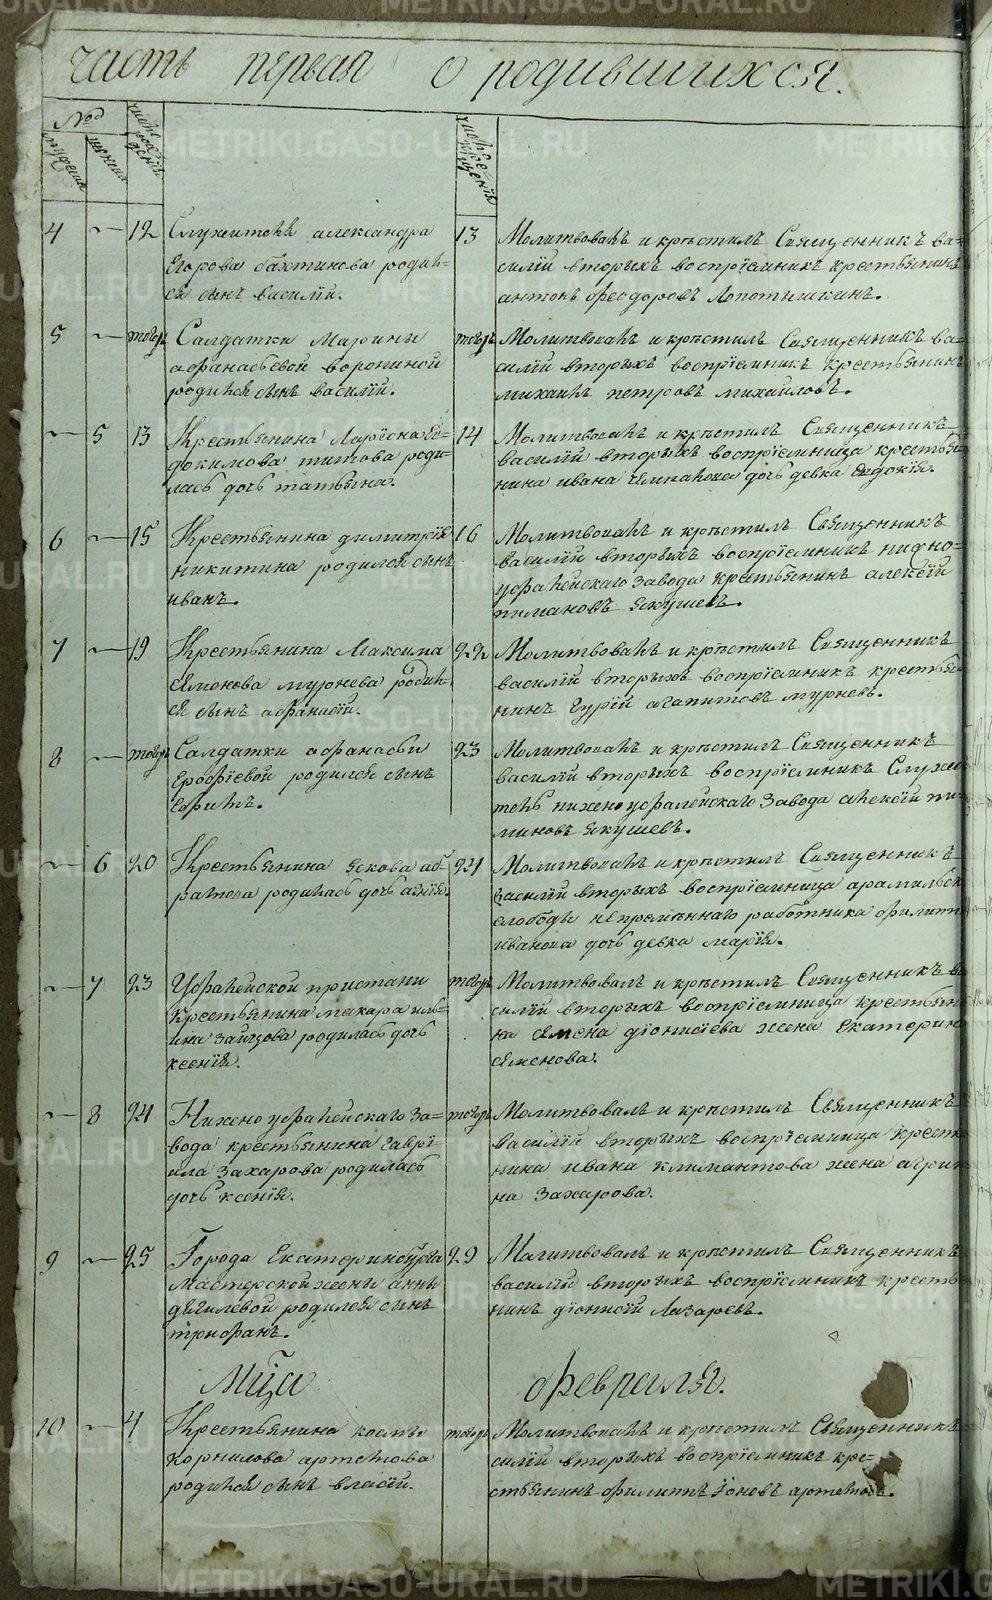 часть первая о родившихся.
№д
мужеска
женска
число рождения
число крещения
4 — 12 Служителя александра
Егорова бахтинова родил-
ся сынъ василий.
13 Молитвовалъ и крѣстилъ Священникъ ва-
силий вторыхъ воспрїемникъ крестьянинъ
антонъ феодоровъ Лопотышкинъ.
5 — тогодъ Салдатки Марины
афанасьевой ворониной
родился сынъ василий.
тогодъ Молитвовалъ и крѣстилъ Священникъ ва-
силий вторыхъ воспрїемникъ крестьянинъ
михаилъ петровъ михайловъ.
— 5 13 Крестьянина Ларїона Ев-
докимова титова роди-
лась дочь татьяна.
14 Молитвовалъ и крѣстилъ Священникъ
василий вторыхъ воспрїемница крестья-
нина ивана дочь девка Евдокїя.
6 — 15 Крестьянина димитрїя
никитина родился сынъ
иванъ.
16 Молитвовалъ и крѣстилъ Священникъ
василий вторыхъ воспрїемникъ нижно-
уфалейскаго завода крестьянинъ алексїй
пимановъ якушевъ.
7 — 19 Крестьянина Максима
Семонова мурнева родил-
ся сынъ афанасїй.
22 Молитвовалъ и крѣстилъ Священникъ
василий вторыхъ воспрїемникъ крестья-
нинъ Гурїй агапитовъ мурневъ.
8 — тогодъ Салдатки афанасьи
Ерофїевой родился сынъ
Ефримъ.
23 Молитвовалъ и крѣстилъ Священникъ
василий вторыхъ воспрїемникъ Служи
тель нижноуфалейскаго завода алексїй пи-
миновъ якушевъ.
— 6 20 Крестьянина якова аб-
рамова родилась дочь агнїя.
24 Молитвовалъ и крѣстилъ Священникъ
василий вторыхъ воспрїемница арамильск
слободы непремѣннаго работника филипп
иванова дочь девка марїя.
— 7 23 Уфалейской пристани
крестьянина макара иль-
ина зайцова родилась дочь
ксенїя.
тогодъ Молитвовалъ и крѣстилъ Священникъ ва
силий вторыхъ воспрїемница крестьян
на Семена дїонисїева жена Екатерина
Семенова.
— 8 24 Нижноуфалейскаго за-
вода крестьянина гаврї-
ила Захарова родилась
дочь ксенїя.
тогодъ Молитвовалъ и крѣстилъ Священникъ
василий вторыхъ воспрїемница крестья
нина ивана климантова жена агрипи
на Захарова.
9 — 25 Города Екатеринбурга
мастерской жены анны
дягилевой родился сынъ
трифанъ.
29 Молитвовалъ и крѣстилъ Священникъ
василий вторыхъ воспрїемникъ кресть
нинъ дїонисїй Лазаревъ.
Мца Февраля.
10 — 4 Крестьянина космы
корнилова артемова
родился сынъ власїй.
тогодъ Молитвовалъ и крѣстилъ Священникъ
силий вторыхъ воспрїемникъ кре-
стьянинъ филипъ Їоновъ артемовъ.
METRIKI.GASO-URAL.RU